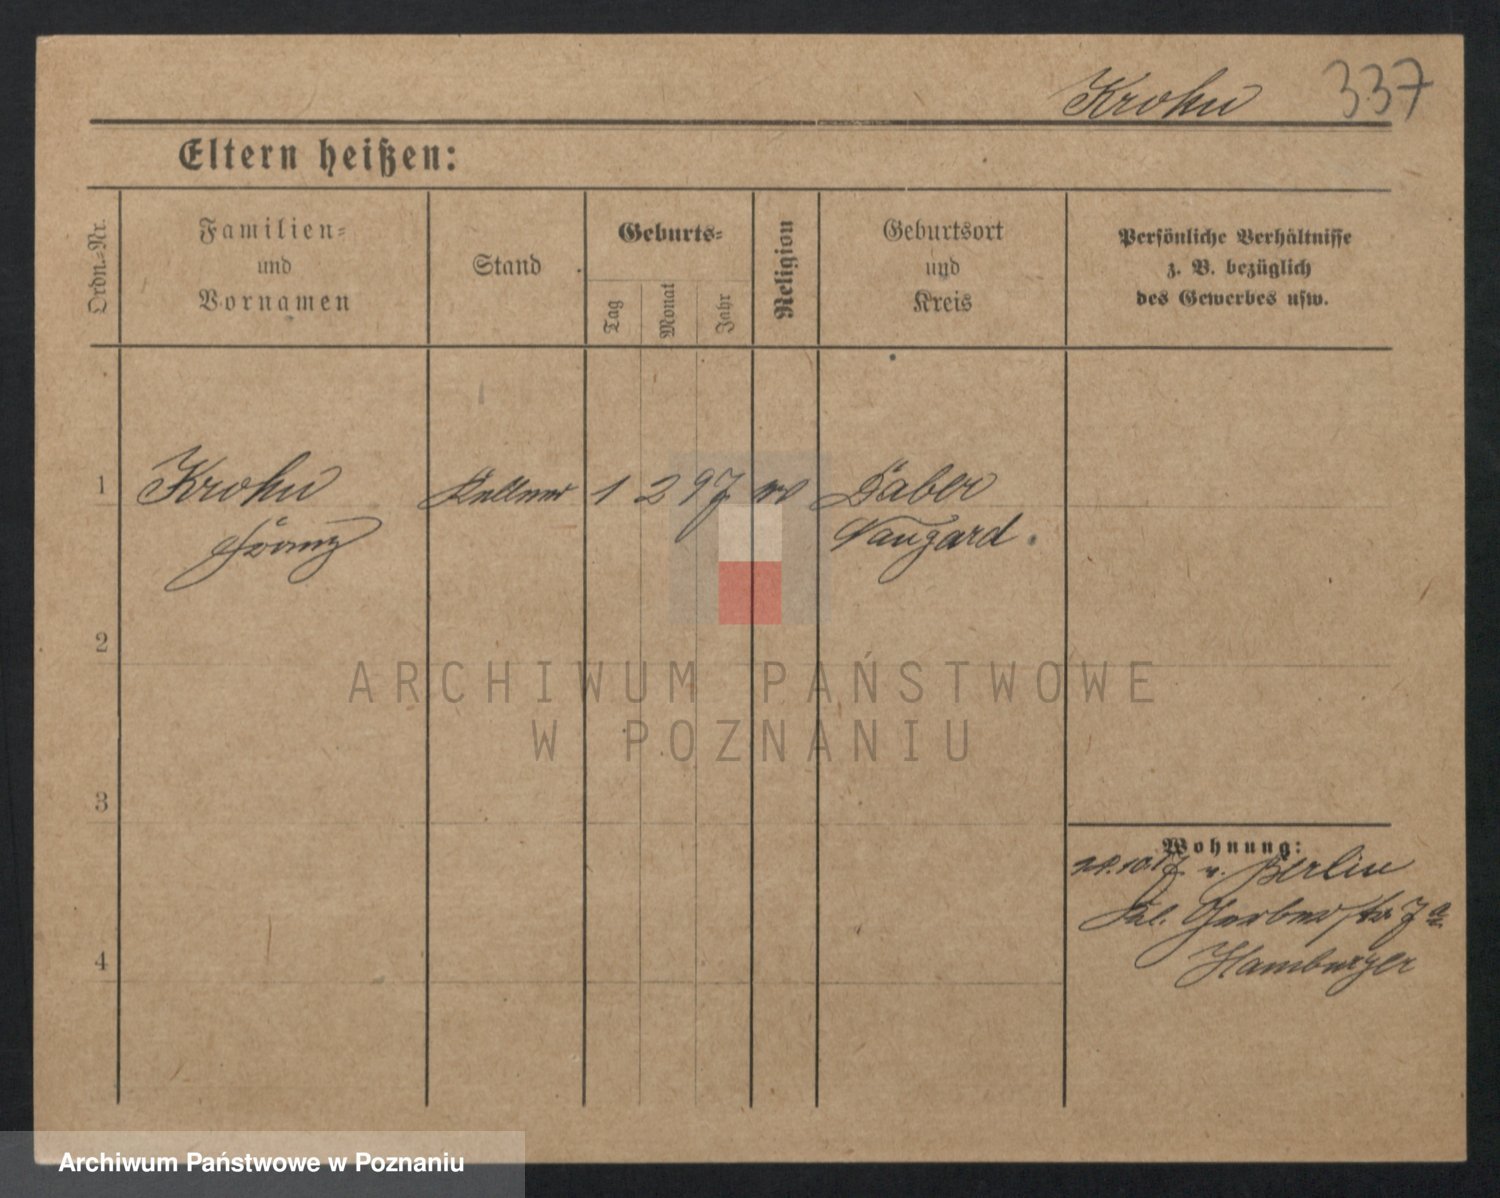 Krohn 337
Eltern heißen:
Ordn.-Nr.
Familien-
und
Vornamen
Stand
Geburts-
Tag
Monat
Jahr
Religion
Geburtsort
und
Kreis
Persönliche Verhältnisse
z. B. bezüglich
des Gewerbes usw.
1 Krohn Kellner 1 2 97 ev Daber
Franz Naugard.
2
3
4
Wohnung:
v. Berlin
Kl. Gerberstr 7a
Hamburger
ARCHIWUM PAŃSTWOWE
W POZNANIU
Archiwum Państwowe w Poznaniu